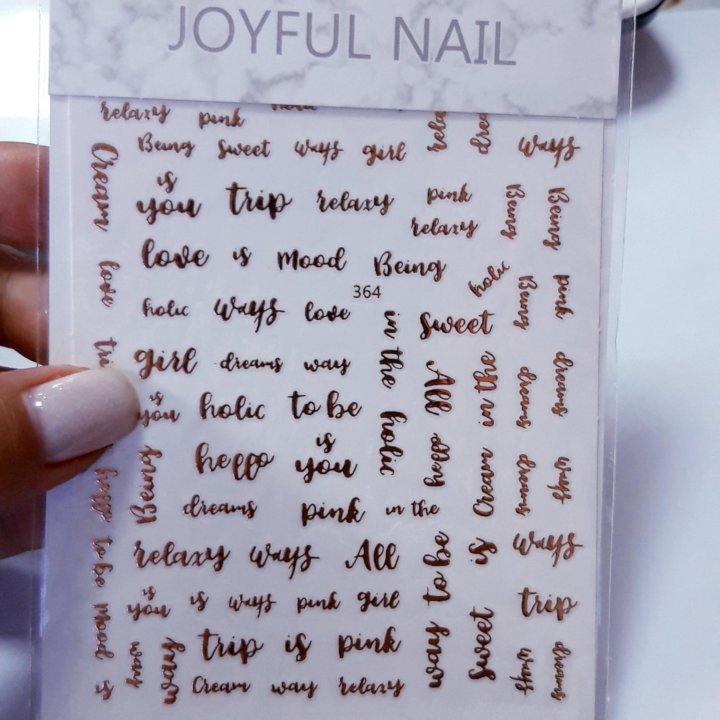 JOYFUL NAIL
relaxy pink
Being sweet ways girl ways
is
you trip relaxy pink
relaxy
love is Mood Being
364
holic ways love sweet
girl dreams way
is
you holic to be
hello is
you
dreams pink in the
relaxy ways All
is
you is ways pink girl trip
trip is pink
Cream way relaxy
Cream
love
hello
to be
mood
is
Being
way
in the
holic
All
hello
way to be
in the
Cream
is
sweet
holic
Being
Being
dreams
dreams
ways
ways
Being
pink
dreams
ways
dreams